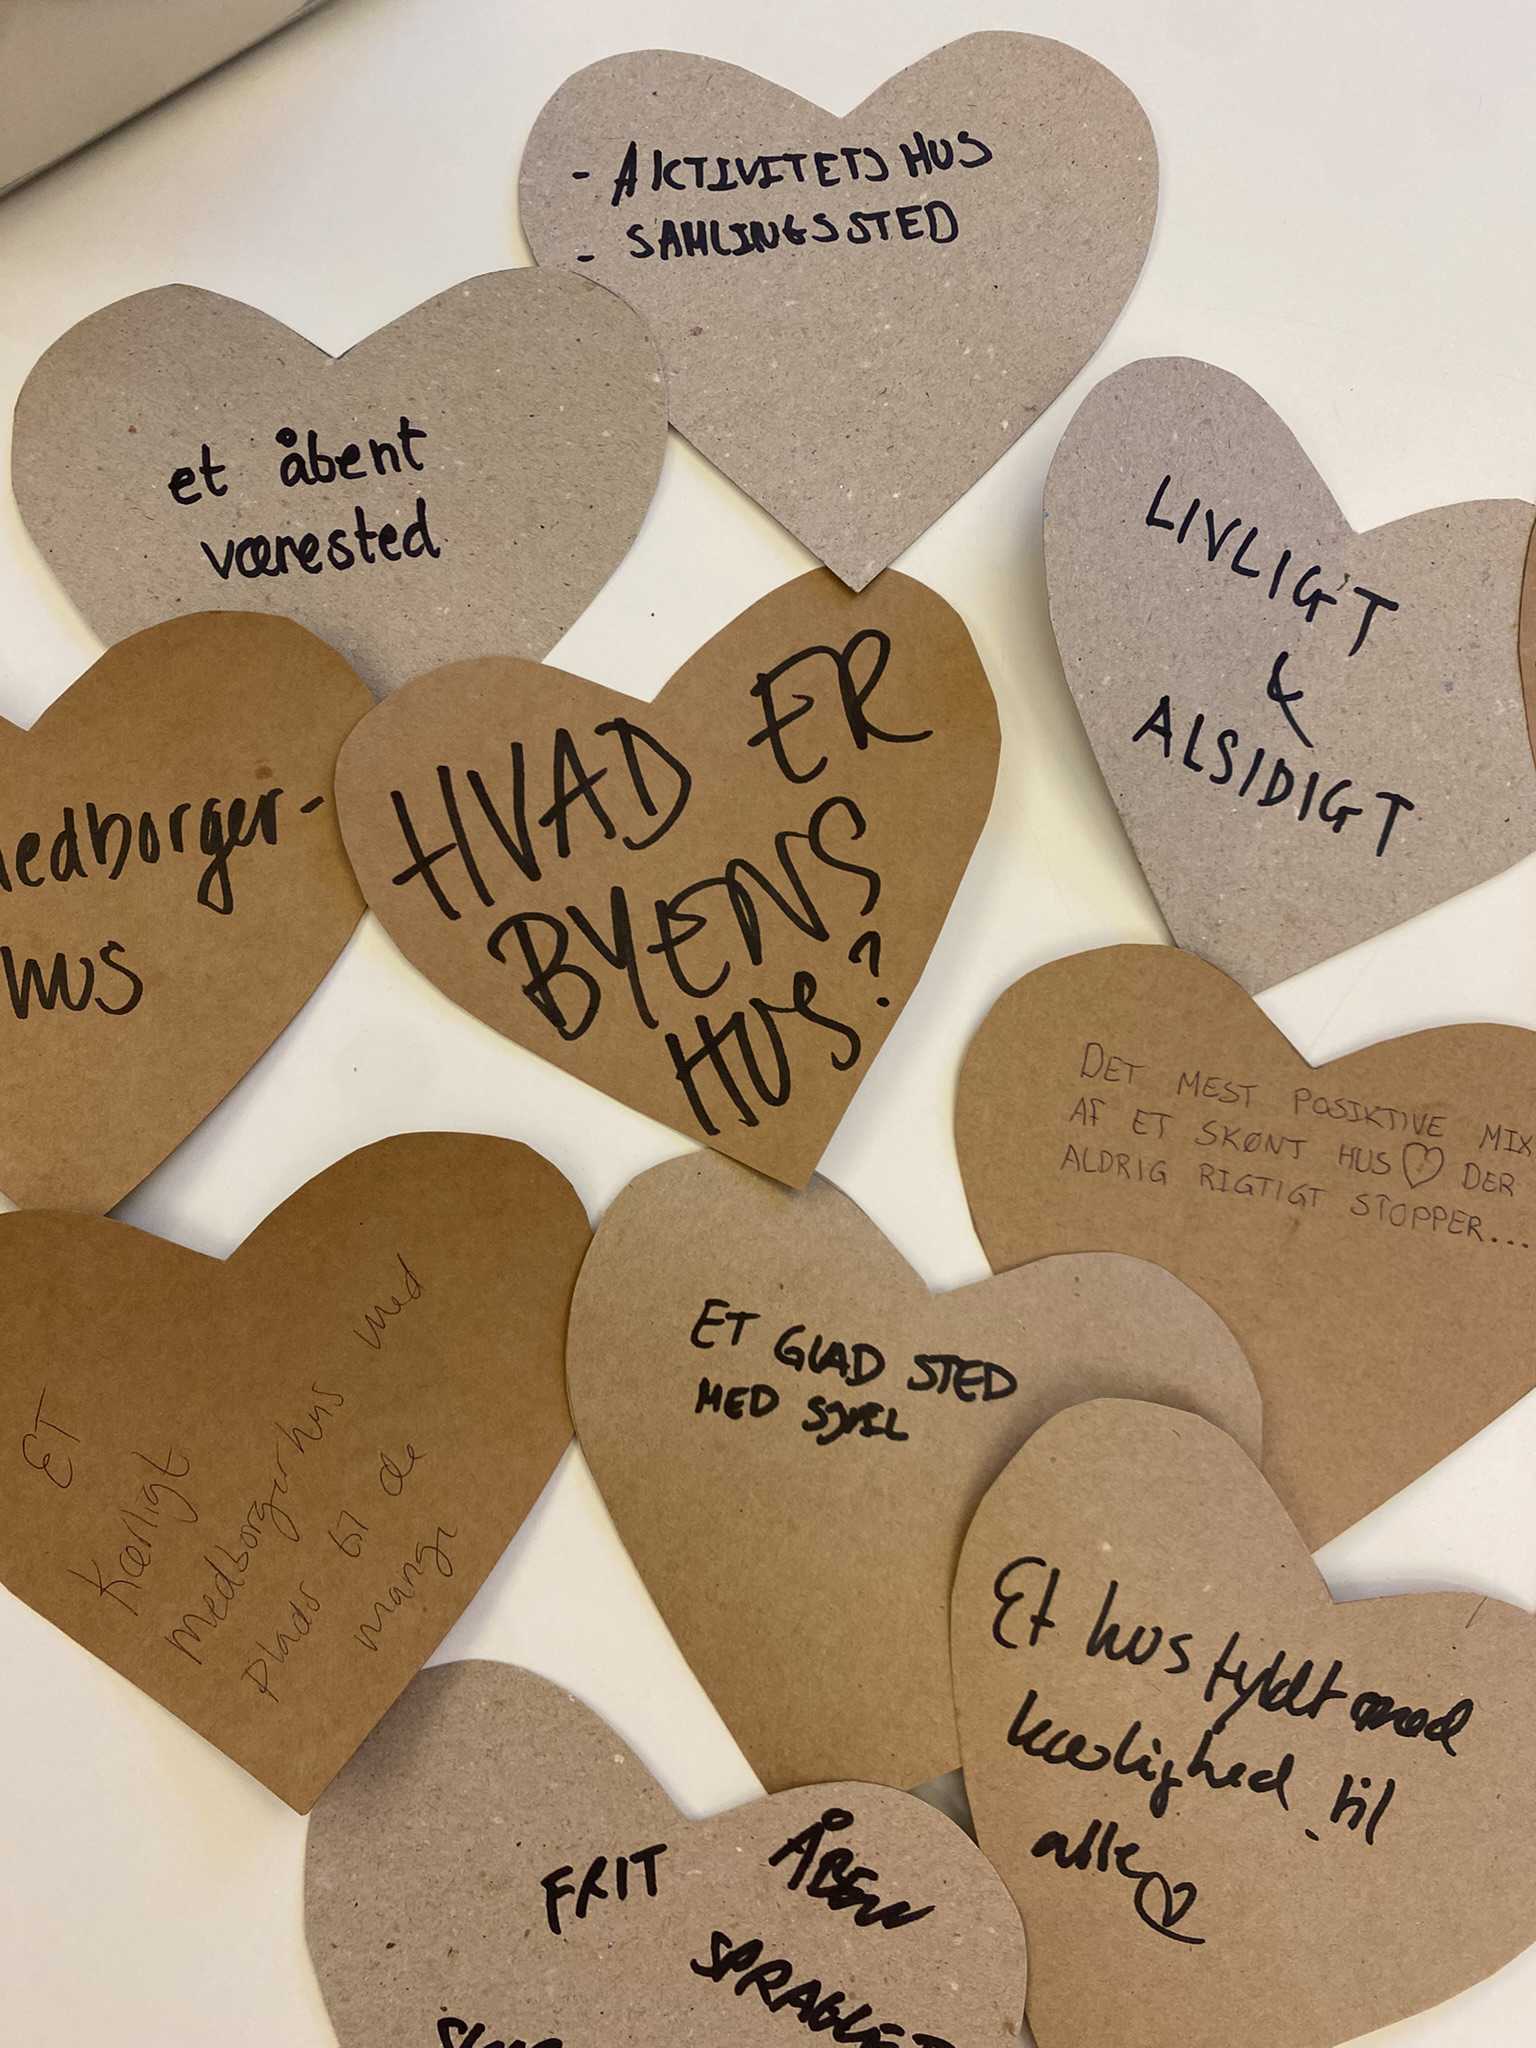 - AKTIVITETSHUS
- SAMLINGSSTED
et åbent
værested
LIVLIGT
&
ALSIDIGT
HVAD ER
BYENS
HUS?
medborger-
hus
DET MEST POSIKTIVE MIX
AF ET SKØNT HUS♡ DER
ALDRIG RIGTIGT STOPPER...
ET GLAD STED
MED SJÆL
ET
Kærligt
medborgerhus med
Plads til de
mange
Et hus fyldt med
kærlighed til
alle♡
FRIT ÅBEN
SPRAGLET